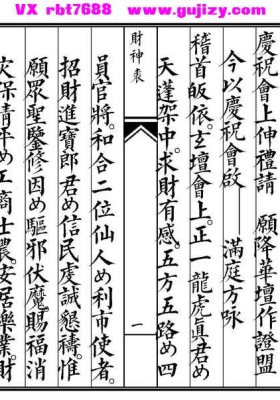 VX rbt7688 www.gujizy.com
慶祝會上伸禮請　願降華壇作證盟
今以慶祝會啟——滿庭方咏
稽首皈依。玄壇會上。正一龍虎眞君め
天蓬架中。求財有感。五方五路め四
財神表
一
員官將。和合二位仙人め利市使者。
招財進寶郎君め信民虔誠懇禱。惟
願眾聖鑒修因め驅邪伏魔。賜福消
灾保清平め工商士農。安居樂業。財